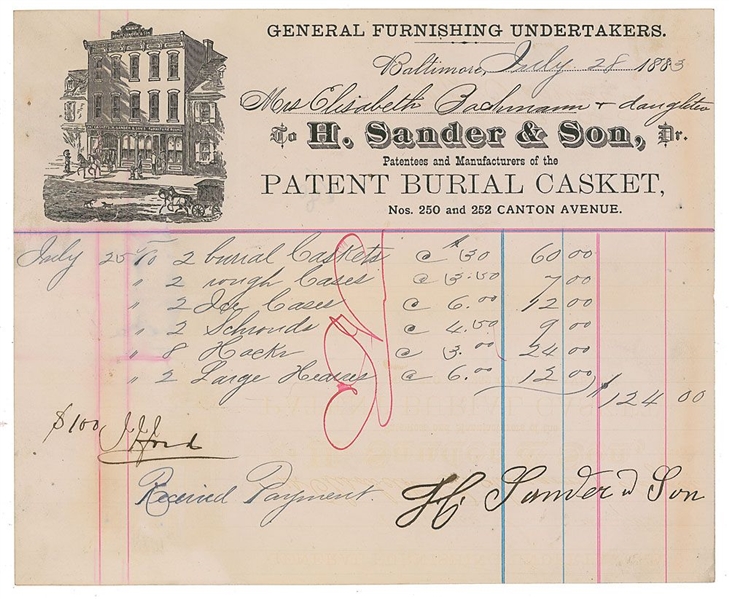 GENERAL FURNISHING UNDERTAKERS.
Baltimore, July 28 1883
Mrs Elisabeth Bachmann & daughter
To H. Sander & Son, Dr.
Patentees and Manufacturers of the
PATENT BURIAL CASKET,
Nos. 250 and 252 CANTON AVENUE.
July 25 To 2 burial Caskets @ $30 60 00
" 2 rough Cases @ 3.50 7 00
" 2 Ice Cases @ 6.00 12 00
" 2 Schrouds @ 4.50 9 00
" 8 Hacks @ 3.00 24 00
" 2 Large Hearses @ 6.00 12 00
$124 00
$100
Received Payment. H. Sander & Son